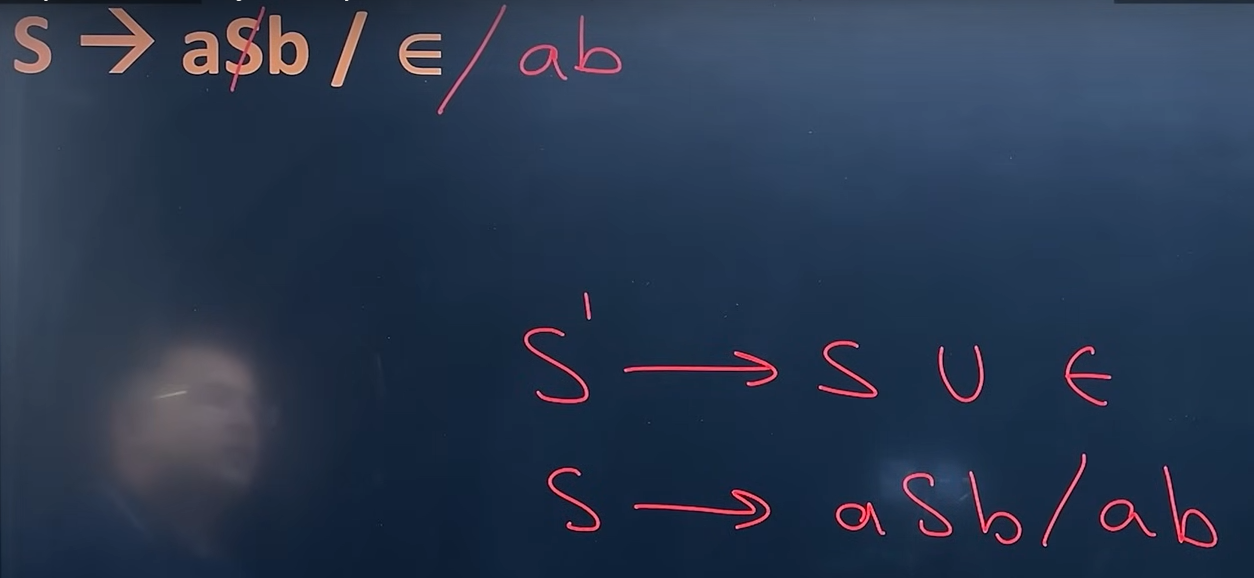 S → aSb / ∈ / ab
S' → S ∪ ∈
S → aSb/ab